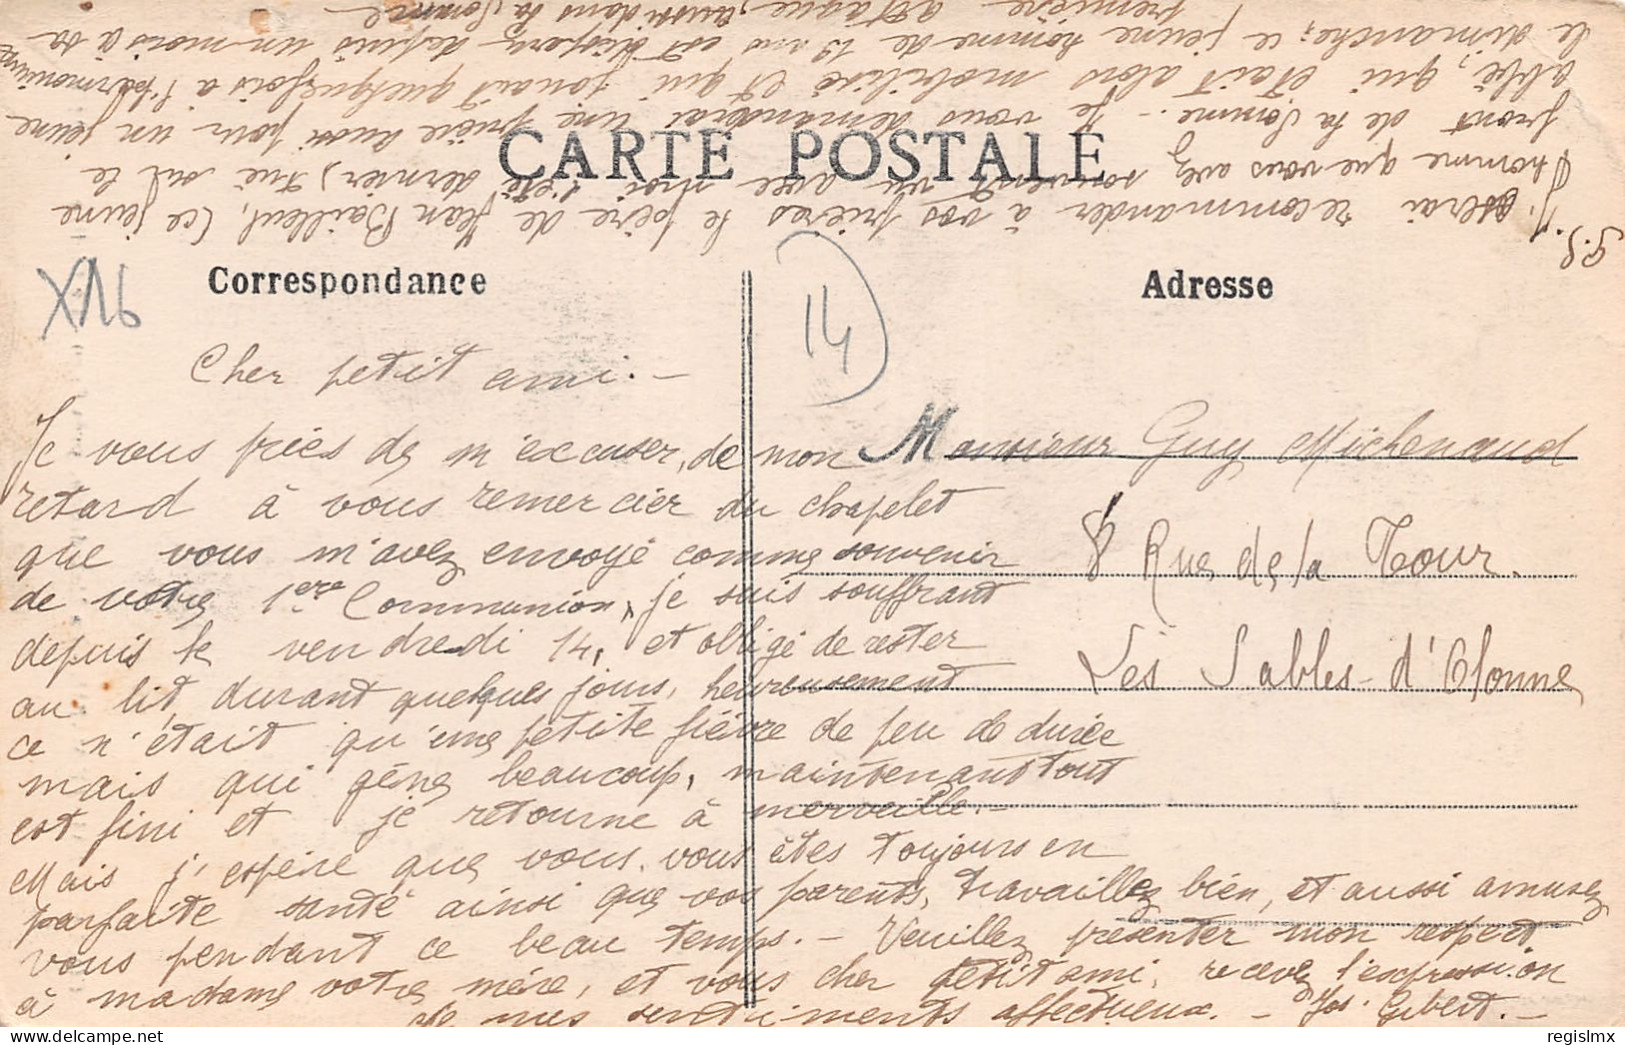 CARTE POSTALE
Correspondance
Adresse
XN6
14
Cher petit ami. —
Je vous pries de m'excuser, de mon
retard à vous remercier du chapelet
que vous m'avez envoyé comme souvenir
de votre 1ère Communion, je suis souffrant
depuis le vendredi 14, et obligé de rester
au lit, durant quelques jours, heureusement
ce n'était qu'une petite fièvre de peu de durée
mais qui gêne beaucoup, maintenant tout
est fini et je retourne à merveille. —
Mais j'espère que vous, vous êtes toujours en
parfaite santé ainsi que vos parents, travaillez bien, et aussi amusez
vous pendant ce beau temps. — Veuillez présenter mon respect
à madame votre mère, et vous cher petit ami, recevez l'expression
de mes sentiments affectueux. — Jos. Gibert. —
Monsieur Guy Michenaud
8 Rue de la Tour.
Les Sables-d'Olonne
P.S.
J'oserai recommander à vos prières le père de Jean Bailleul, (ce jeune
homme que vous avez souvent vu avec moi l'été dernier) tué sur le
front de la Somme. — Je vous demanderai une prière aussi pour un jeune
abbé, qui était alors mobilisé et qui jouait quelquefois à l'harmonium
le dimanche; ce jeune homme de 19 ans est disparu depuis un mois à sa
première attaque, aussi dans la Somme
regislmx